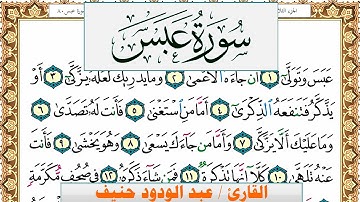 سورة عبس
عَبَسَ وَتَوَلَّىٰ ١ أَن جَاءَهُ الْأَعْمَىٰ ٢ وَمَا يُدْرِيكَ لَعَلَّهُ يَزَّكَّىٰ ٣ أَوْ
يَذَّكَّرُ فَتَنفَعَهُ الذِّكْرَىٰ ٤ أَمَّا مَنِ اسْتَغْنَىٰ ٥ فَأَنتَ لَهُ تَصَدَّىٰ ٦
وَمَا عَلَيْكَ أَلَّا يَزَّكَّىٰ ٧ وَأَمَّا مَن جَاءَكَ يَسْعَىٰ ٨ وَهُوَ يَخْشَىٰ ٩ فَأَنتَ
عَنْهُ تَلَهَّىٰ ١٠ كَلَّا إِنَّهَا تَذْكِرَةٌ ١١ فَمَن شَاءَ ذَكَرَهُ ١٢ فِي صُحُفٍ مُّكَرَّمَةٍ
القارئ / عبد الودود حنيف